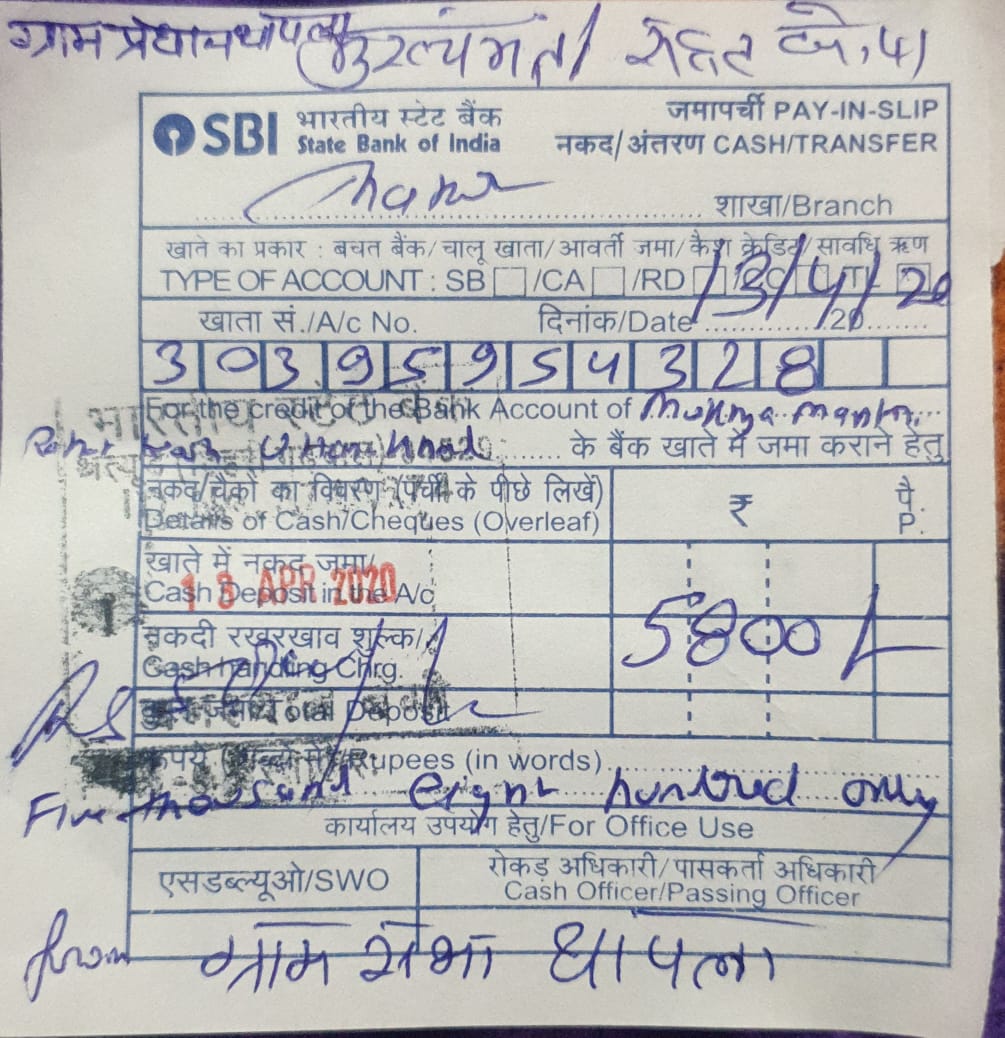 ग्राम प्रधान थापला मुख्यमंत्री राहत कोष
SBI भारतीय स्टेट बैंक
State Bank of India
जमापर्ची PAY-IN-SLIP
नकद/अंतरण CASH/TRANSFER
शाखा/Branch
खाते का प्रकार : बचत बैंक/ चालू खाता/ आवर्ती जमा/ कैश क्रेडिट/ सावधि ऋण
TYPE OF ACCOUNT : SB /CA /RD /CC /TL
खाता सं./A/c No. दिनांक/Date 13/4/20
30395954328
For the credit of the Bank Account of Mukhya Mantri
के बैंक खाते में जमा कराने हेतु
नकद/चैकों का विवरण (पर्ची के पीछे लिखें) ₹ पै.
Details of Cash/Cheques (Overleaf) P.
खाते में नकद जमा/
Cash Deposit in the A/c
13 APR 2020
नकदी रखरखाव शुल्क/ 5800/-
Cash Handling Chrg.
कुल जमा/Total Deposit
रुपये (शब्दों में)/Rupees (in words)
Five thousand eight hundred only
कार्यालय उपयोग हेतु/For Office Use
एसडब्ल्यूओ/SWO
रोकड़ अधिकारी/पासकर्ता अधिकारी
Cash Officer/Passing Officer
from ग्राम सभा थापला